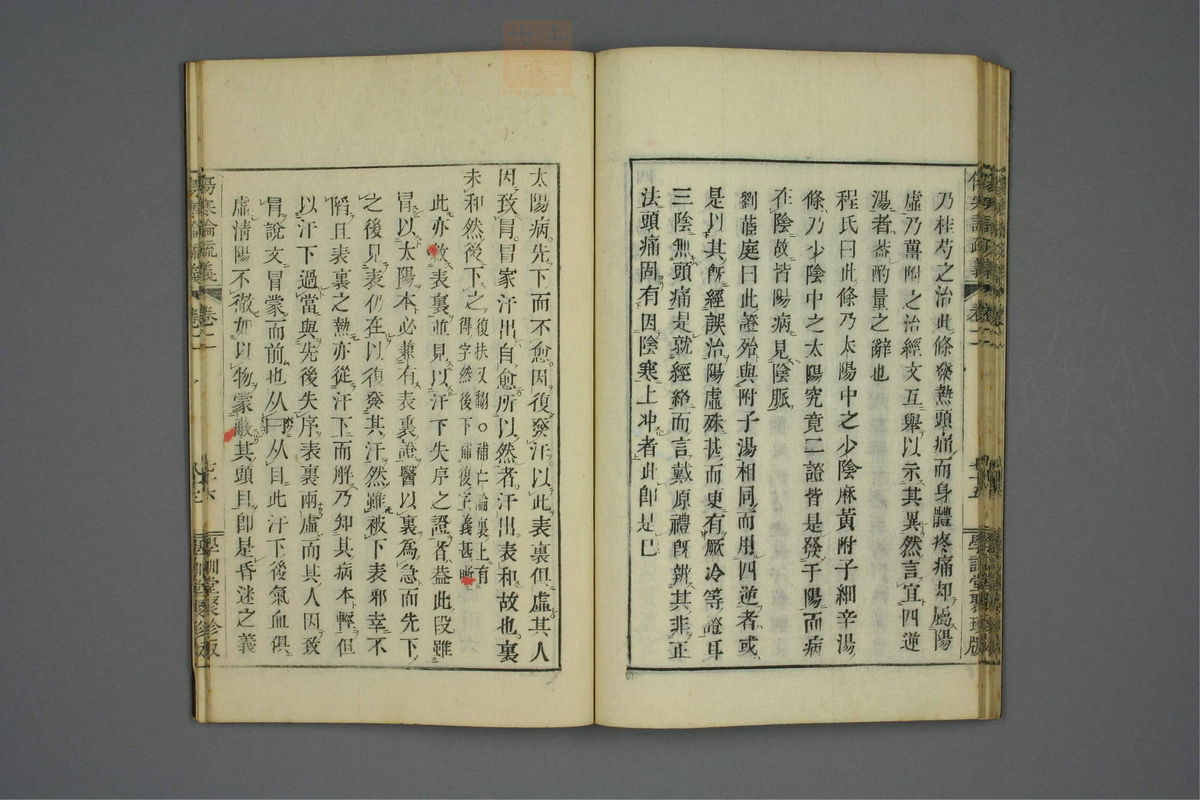 乃桂芍之治此條發熱頭痛而身體疼痛却屬陽
虛乃薑附之治經文互舉以示其異然言宜四逆
湯者葢酌量之辭也
程氏曰此條乃太陽中之少陰麻黃附子細辛湯
條乃少陰中之太陽究竟二證皆是發于陽而病
在陰故皆陽病見陰脈
劉蓲庭曰此證殆與附子湯相同而用四逆者或
是以其旣經誤治陽虛殊甚而更有厥冷等證耳
三陰無頭痛是就經絡而言戴原禮旣辨其非正
法頭痛固有因陰寒上冲者此卽是已
太陽病先下而不愈因復發汗以此表裏但虛其人
因致冒冒家汗出自愈所以然者汗出表和故也裏
未和然後下之復扶又翻○補亡論裏上有
得字然後下補復字義甚晰
此亦救表裏並見以汗下失序之證者葢此段雖
冒以太陽本必兼有表裏證醫以裏為急而先下
之後見表仍在以復發其汗然雖被下表邪幸不
陷且表裏之熱亦從汗下而解乃知其病本輕但
以汗下過當與先後失序表裏兩虛而其人因致
冒說文冒蒙而前也从冃从目此汗下後氣血俱
虛清陽不徹如以物蒙蔽其頭目卽是昏迷之義
傷寒論疏義 卷二 七十六 學訓堂聚珍版